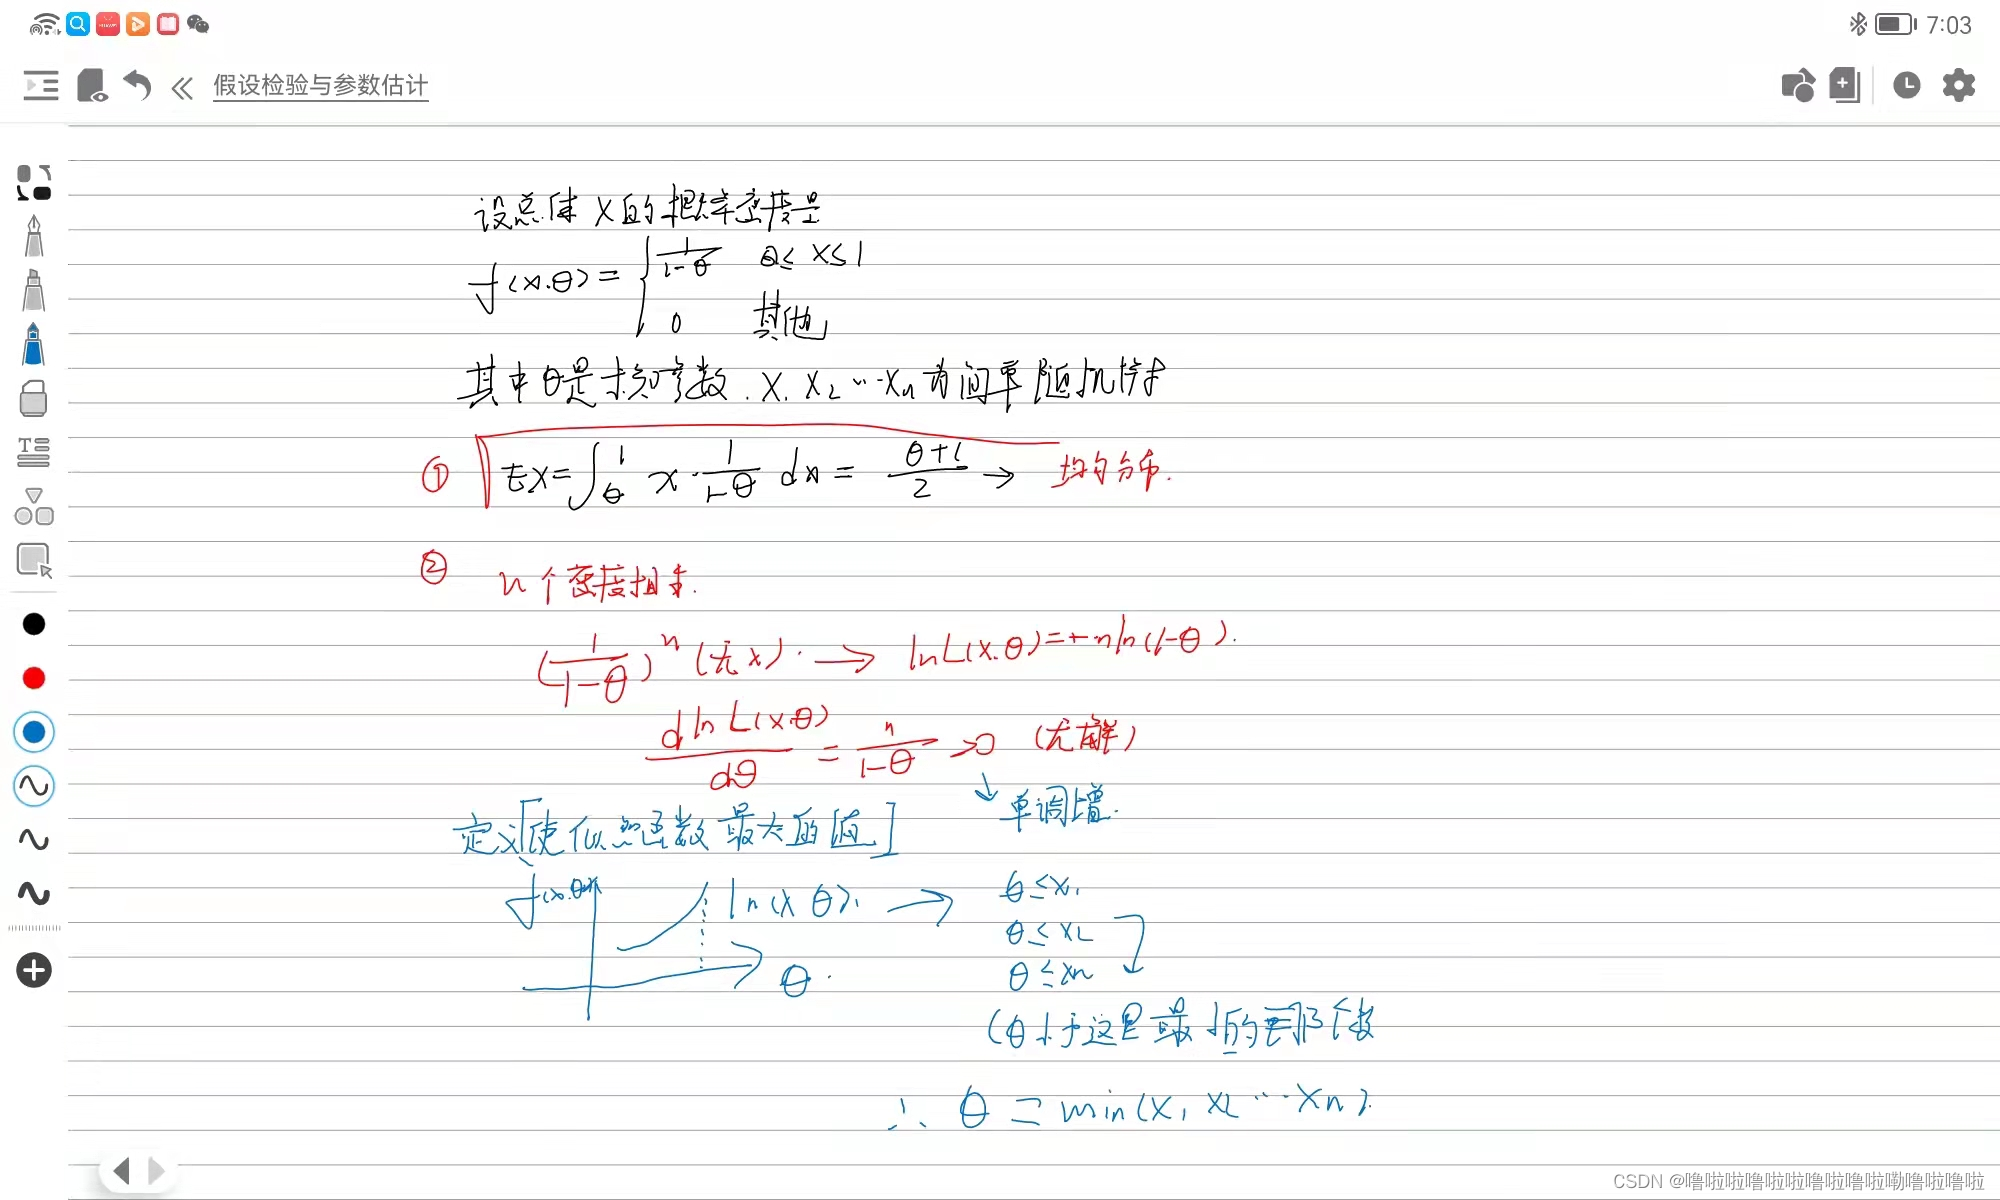 7:03
假设检验与参数估计
设总体 X的概率密度是
f(x.θ) = { 1/(1-θ) θ≤ x≤1
0 其他
其中θ是未知参数. X₁ X₂ … Xn 为简单随机样本
① EX=∫_θ^1 x·1/(1-θ) dx = (θ+1)/2 → 均匀分布.
② n个密度相乘.
(1/(1-θ))^n (无x). → lnL(x.θ)=-nln(1-θ).
dlnL(x.θ)/dθ = n/(1-θ) >0 (无解)
↓ 单调增.
定义[使似然函数最大的值]
f(x.θ) ln(x θ). → θ≤x₁
θ≤x₂
θ . θ≤xn
(θ小于这里最小的那个数
∴ θ = min(x₁ x₂ … xn).
CSDN @噜啦啦噜啦啦噜啦噜啦嘞噜啦噜啦